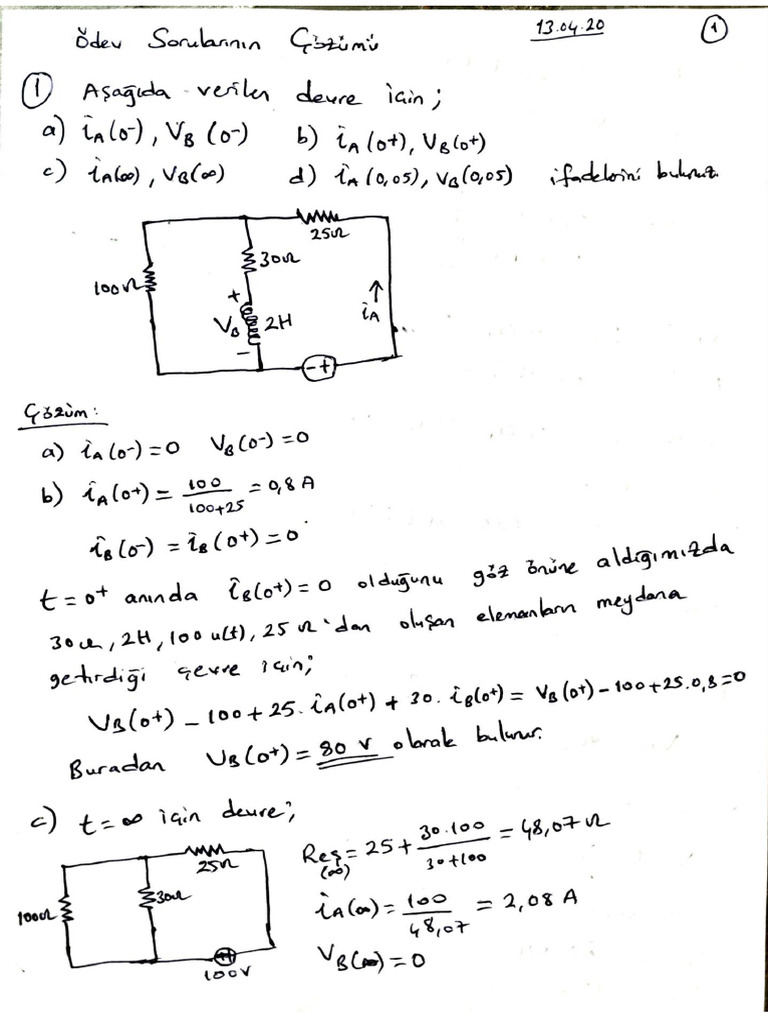 13.04.20
1
Ödev Sorularının Çözümü
1 Aşağıda verilen devre için;
a) iA(0-), VB(0-) b) iA(0+), VB(0+)
c) iA(∞), VB(∞) d) iA(0,05), VB(0,05) ifadelerini bulunuz.
25Ω
30Ω
100Ω
+
VB 2H
-
iA
- +
Çözüm:
a) iA(0-)=0 VB(0-)=0
b) iA(0+) = 100/100+25 = 0,8 A
iB(0-) = iB(0+) = 0
t=0+ anında iB(0+)=0 olduğunu göz önüne aldığımızda
30Ω, 2H, 100 u(t), 25 Ω'dan oluşan elemanların meydana
getirdiği çevre için;
VB(0+) - 100 + 25. iA(0+) + 30. iB(0+) = VB(0+) - 100+25.0,8=0
Buradan VB(0+) = 80 V olarak bulunur.
c) t=∞ için devre;
25Ω
30Ω
100Ω
100V
Reş(∞) = 25 + 30.100/30+100 = 48,07 Ω
iA(∞) = 100/48,07 = 2,08 A
VB(∞) = 0